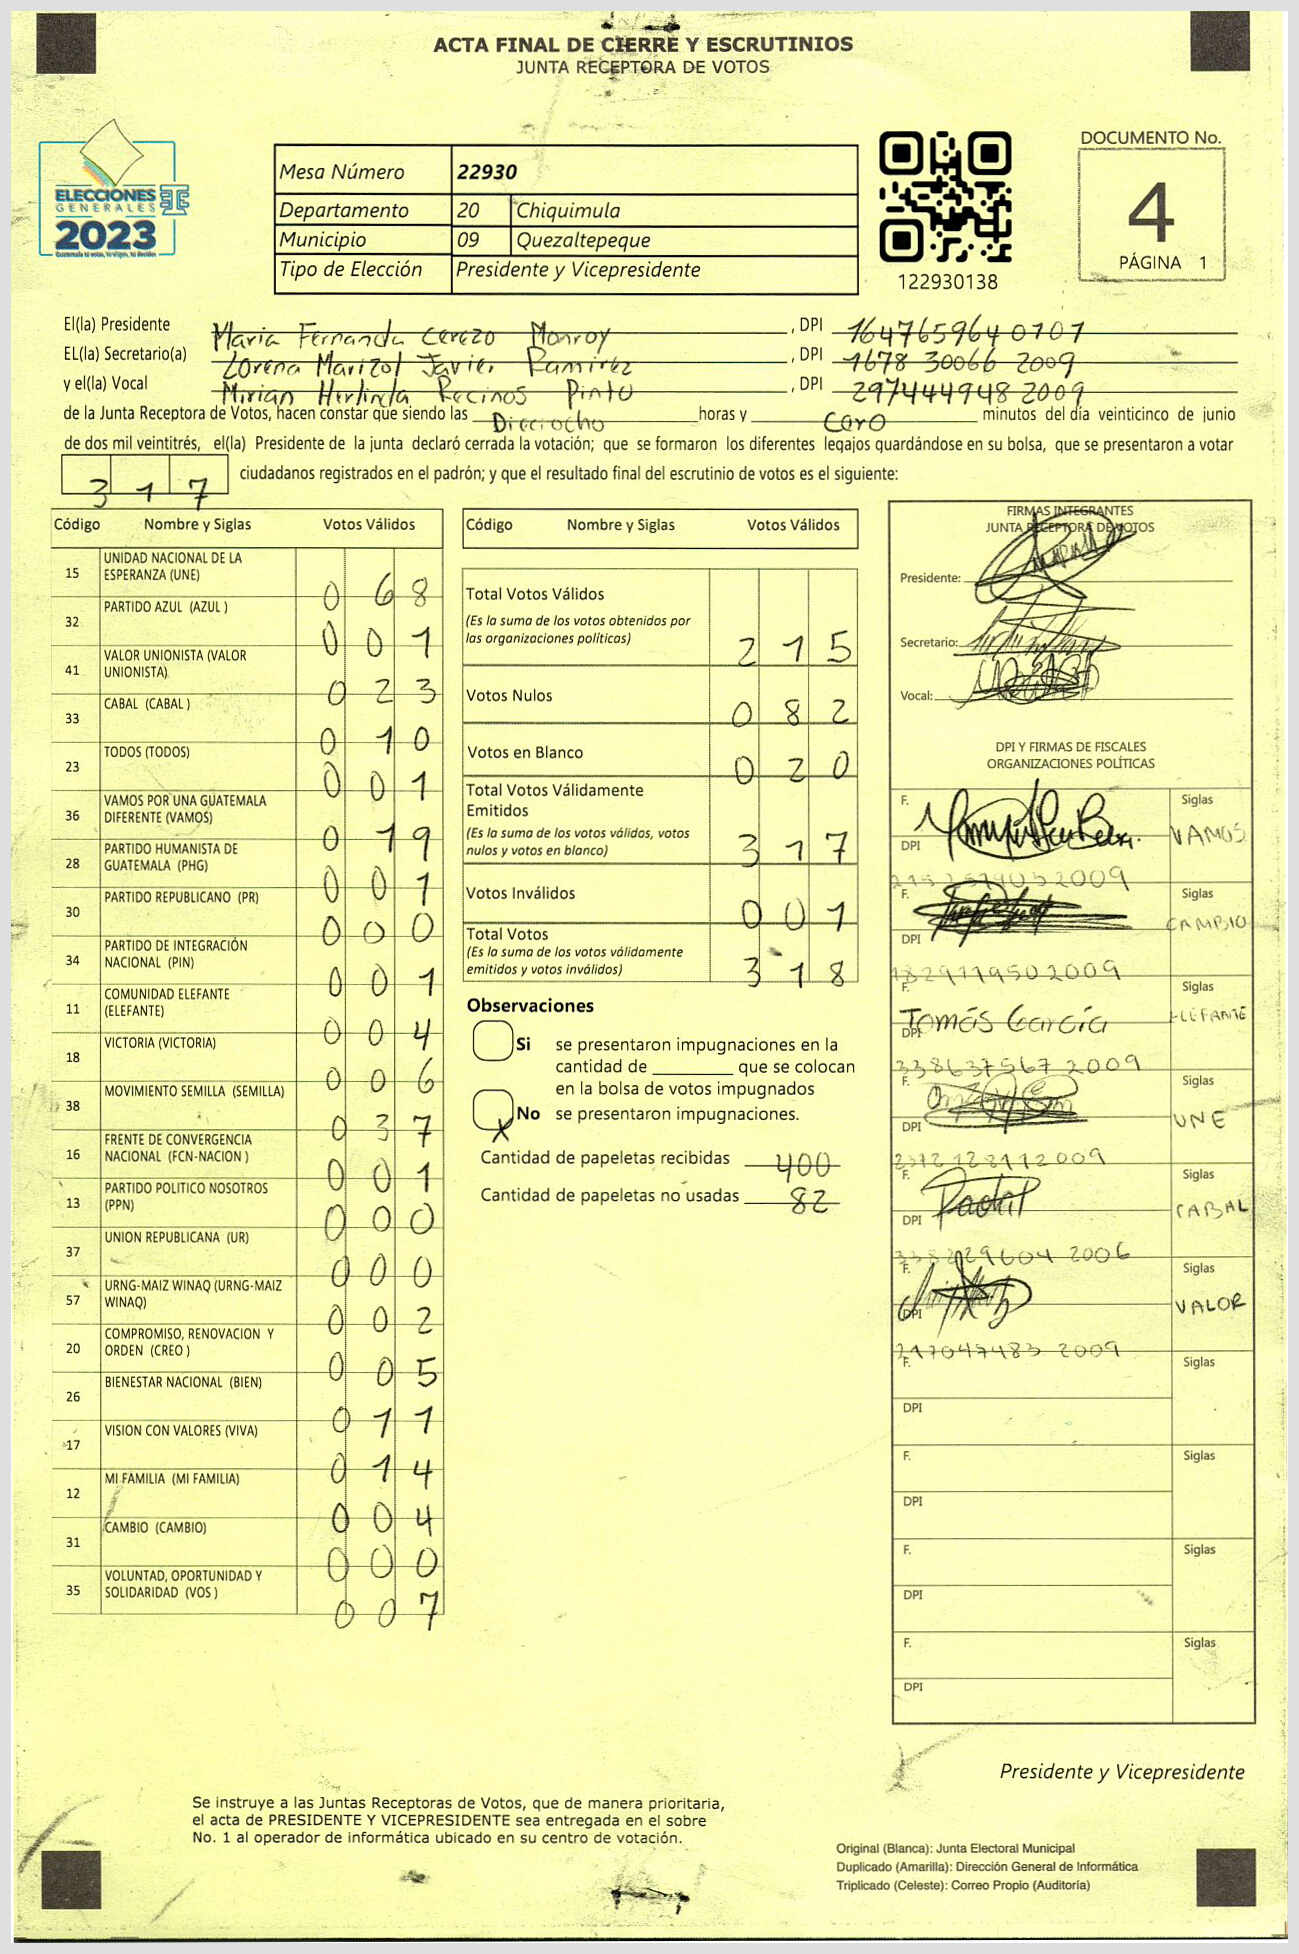 ACTA FINAL DE CIERRE Y ESCRUTINIOS
JUNTA RECEPTORA DE VOTOS
ELECCIONES
GENERALES
2023
Mesa Número 22930
Departamento 20 Chiquimula
Municipio 09 Quezaltepeque
Tipo de Elección Presidente y Vicepresidente
122930138
DOCUMENTO No.
4
PÁGINA 1
El(la) Presidente Maria Fernanda Cerezo Monroy , DPI 164765964 0707
EL(la) Secretario(a) Lorena Marizol Javier Ramirez , DPI 1678 30066 2009
y el(la) Vocal Mirian Herlinda Recinos Pinto , DPI 297444948 2009
de la Junta Receptora de Votos, hacen constar que siendo las Dieciocho horas y Cero minutos del día veinticinco de junio
de dos mil veintitrés, el(la) Presidente de la junta declaró cerrada la votación; que se formaron los diferentes legajos guardándose en su bolsa, que se presentaron a votar
317 ciudadanos registrados en el padrón; y que el resultado final del escrutinio de votos es el siguiente:
Código Nombre y Siglas Votos Válidos
15 UNIDAD NACIONAL DE LA ESPERANZA (UNE) 068
32 PARTIDO AZUL (AZUL ) 001
41 VALOR UNIONISTA (VALOR UNIONISTA) 023
33 CABAL (CABAL ) 010
23 TODOS (TODOS) 001
36 VAMOS POR UNA GUATEMALA DIFERENTE (VAMOS) 019
28 PARTIDO HUMANISTA DE GUATEMALA (PHG) 001
30 PARTIDO REPUBLICANO (PR) 000
34 PARTIDO DE INTEGRACIÓN NACIONAL (PIN) 001
11 COMUNIDAD ELEFANTE (ELEFANTE) 004
18 VICTORIA (VICTORIA) 006
38 MOVIMIENTO SEMILLA (SEMILLA) 037
16 FRENTE DE CONVERGENCIA NACIONAL (FCN-NACION ) 001
13 PARTIDO POLITICO NOSOTROS (PPN) 000
37 UNION REPUBLICANA (UR) 000
57 URNG-MAIZ WINAQ (URNG-MAIZ WINAQ) 002
20 COMPROMISO, RENOVACION Y ORDEN (CREO ) 005
26 BIENESTAR NACIONAL (BIEN) 011
17 VISION CON VALORES (VIVA) 014
12 MI FAMILIA (MI FAMILIA) 004
31 CAMBIO (CAMBIO) 000
35 VOLUNTAD, OPORTUNIDAD Y SOLIDARIDAD (VOS ) 007
Código Nombre y Siglas Votos Válidos
Total Votos Válidos 215
(Es la suma de los votos obtenidos por
las organizaciones políticas)
Votos Nulos 082
Votos en Blanco 020
Total Votos Válidamente
Emitidos 317
(Es la suma de los votos válidos, votos
nulos y votos en blanco)
Votos Inválidos 001
Total Votos 318
(Es la suma de los votos válidamente
emitidos y votos inválidos)
Observaciones
Si se presentaron impugnaciones en la
cantidad de ________ que se colocan
en la bolsa de votos impugnados
X No se presentaron impugnaciones.
Cantidad de papeletas recibidas 400
Cantidad de papeletas no usadas 82
FIRMAS INTEGRANTES
JUNTA RECEPTORA DE VOTOS
Presidente:
Secretario:
Vocal:
DPI Y FIRMAS DE FISCALES
ORGANIZACIONES POLÍTICAS
F. Siglas
DPI VAMOS
F. Siglas
DPI CAMBIO
F. Siglas
Tomás García
DPI ELEFANTE
338637567 2009
F. Siglas
DPI UNE
F. Siglas
DPI CABAL
F. Siglas
DPI VALOR
F. Siglas
DPI
F. Siglas
DPI
F. Siglas
DPI
F. Siglas
DPI
Presidente y Vicepresidente
Se instruye a las Juntas Receptoras de Votos, que de manera prioritaria,
el acta de PRESIDENTE Y VICEPRESIDENTE sea entregada en el sobre
No. 1 al operador de informática ubicado en su centro de votación.
Original (Blanca): Junta Electoral Municipal
Duplicado (Amarilla): Dirección General de Informática
Triplicado (Celeste): Correo Propio (Auditoría)